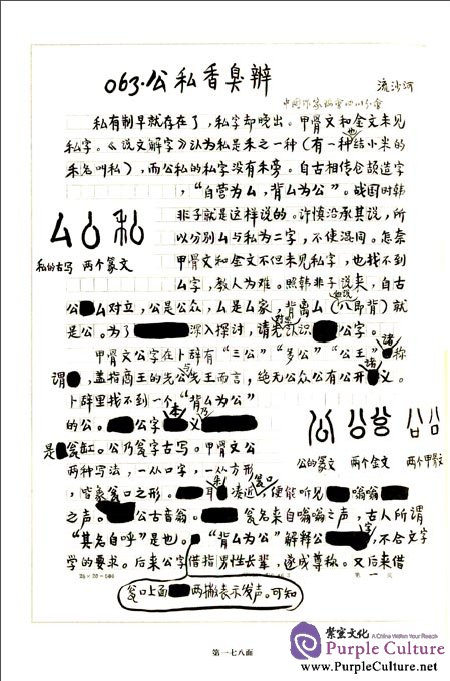 063·公私香臭辨
流沙河
中国作家协会四川分会
私有制早就存在了，私字却晚出。甲骨文和金文未见
私字。《说文解字》认为私是禾之一种（有一种结小米的
也
禾名叫私），而公私的私字没有禾旁。自古相传仓颉造字
，“自营为厶，背厶为公”。战国时韩
非子就是这样说的。许慎沿承其说，所
以分别厶与私为二字，不使混同。怎奈
私的古写 两个篆文
甲骨文和金文不但未见私字，也找不到
厶字，教人为难。照韩非子说来，自古
公厶对立，公是公众，厶是厶家，背离厶（八即背）就
是公。为了深入探讨，请先认识公字。
甲骨文公字在卜辞有“三公”“多公”“公王”诸称
谓，盖指商王的先公先王而言，绝无公众公有公开诸义。
卜辞里找不到一个“背厶为公”
的公。公字本义乃
是瓮缸。公乃瓮字古写。甲骨文公
公的篆文 两个金文 两个甲骨文
两种写法，一从口字，一从方形
，皆象瓮口之形。耳朵凑近瓮口，便能听见嗡嗡
之声。公古音翁。瓮名来自嗡嗡之声，古人所谓
“其名自呼”是也。“背厶为公”解释公字，不合文字
学的要求。后来公字借指男性长辈，遂成尊称。又后来借
25×20=500
第一页
瓮口上面两撇表示发声。可知
第一七八面
紫宝文化 A China Within Your Reach
Purple Culture
www.PurpleCulture.net